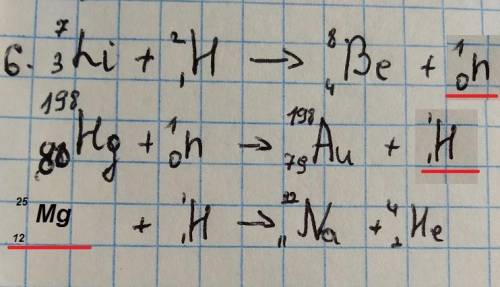 6. ⁷₃Li + ²₁H → ⁸₄Be + ¹₀n
¹⁹⁸₈₀Hg + ¹₀n → ¹⁹⁸₇₉Au + ¹₁H
²⁵₁₂Mg + ¹₁H → ²²₁₁Na + ⁴₂He